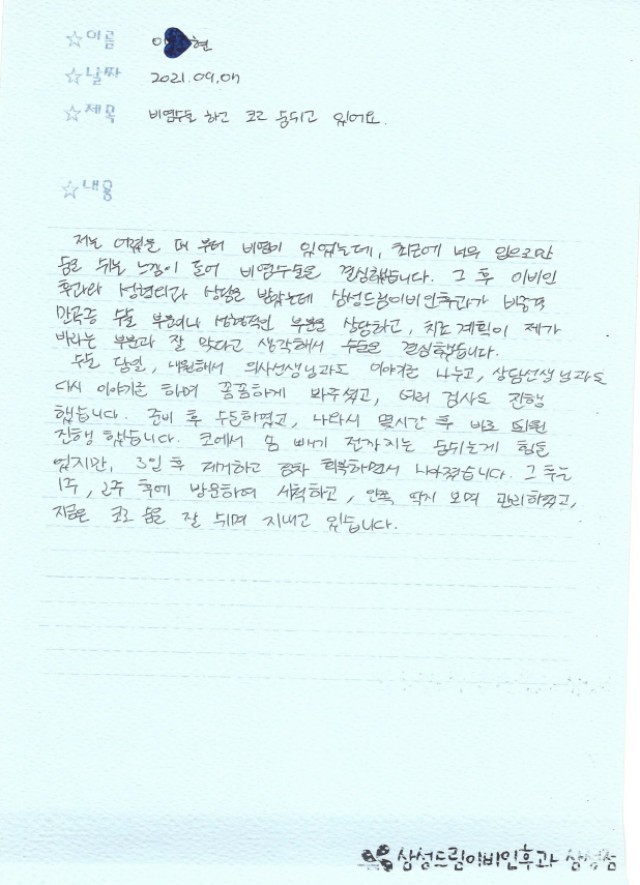 ☆이름 이 현
☆날짜 2021.09.07
☆제목 비염수술 하고 코로 숨쉬고 있어요.
☆내용
저는 어렸을 때 부터 비염이 있었는데, 최근에 너무 입으로만
숨을 쉬는 느낌이 들어 비염수술을 결심했습니다. 그 후 이비인
후과와 성형외과 상담을 받았는데 삼성드림이비인후과가 비중격
만곡증 수술 부분이나 성형적인 부분을 상담하고, 치료 계획이 제가
바라는 부분과 잘 맞다고 생각해서 수술을 결심했습니다.
수술 당일, 내원해서 의사선생님과도 이야기를 나누고, 상담선생님과도
다시 이야기를 하며 꼼꼼하게 봐주셨고, 여러 검사도 진행
했습니다. 준비 후 수술하였고, 나와서 몇시간 후 바로 퇴원
진행 했습니다. 코에서 솜 빼기 전까지는 숨쉬는게 힘들
었지만, 3일 후 제거하고 점차 회복하면서 나아졌습니다. 그 후는
1주, 2주 차에 방문하여 세척하고, 안쪽 딱지 보며 관리하였고,
지금은 코로 숨을 잘 쉬며 지내고 있습니다.
삼성드림이비인후과 삼성점